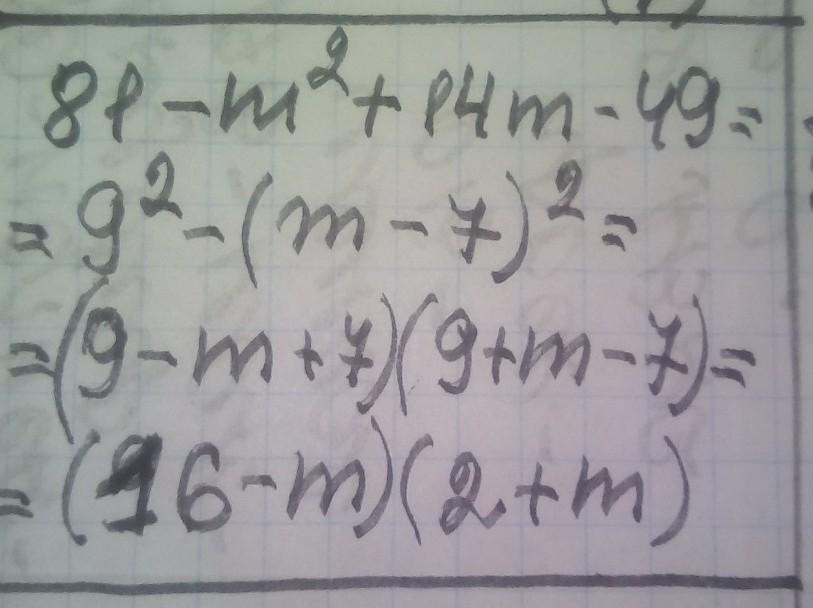 81-m²+14m-49=
=9²-(m-7)²=
=(9-m+7)(9+m-7)=
=(16-m)(2+m)